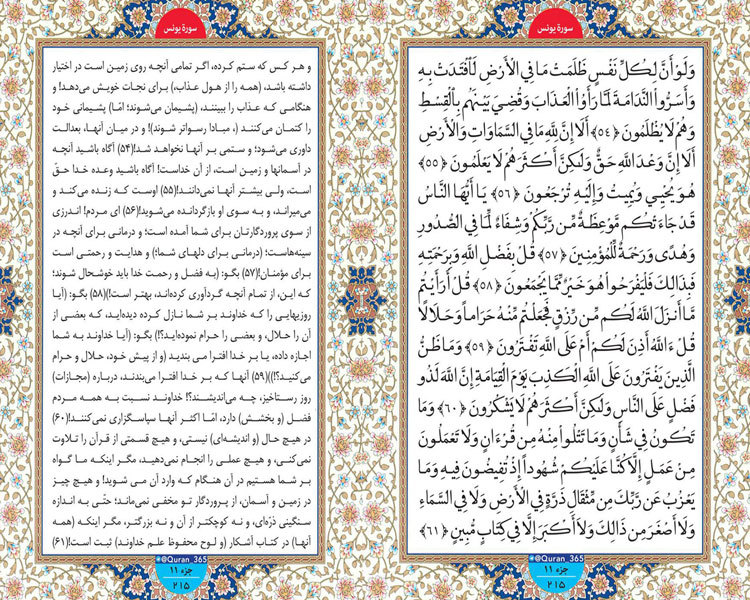 سورة یونس
وَلَوْ أَنَّ لِكُلِّ نَفْسٍ ظَلَمَتْ مَا فِي الْأَرْضِ لَافْتَدَتْ بِهِ
وَأَسَرُّوا النَّدَامَةَ لَمَّا رَأَوُا الْعَذَابَ وَقُضِيَ بَيْنَهُم بِالْقِسْطِ
وَهُمْ لَا يُظْلَمُونَ ﴿٥٤﴾ أَلَا إِنَّ لِلَّهِ مَا فِي السَّمَاوَاتِ وَالْأَرْضِ
أَلَا إِنَّ وَعْدَ اللَّهِ حَقٌّ وَلَٰكِنَّ أَكْثَرَهُمْ لَا يَعْلَمُونَ ﴿٥٥﴾
هُوَ يُحْيِي وَيُمِيتُ وَإِلَيْهِ تُرْجَعُونَ ﴿٥٦﴾ يَا أَيُّهَا النَّاسُ
قَدْ جَاءَتْكُم مَّوْعِظَةٌ مِّن رَّبِّكُمْ وَشِفَاءٌ لِّمَا فِي الصُّدُورِ
وَهُدًى وَرَحْمَةٌ لِّلْمُؤْمِنِينَ ﴿٥٧﴾ قُلْ بِفَضْلِ اللَّهِ وَبِرَحْمَتِهِ
فَبِذَٰلِكَ فَلْيَفْرَحُوا هُوَ خَيْرٌ مِّمَّا يَجْمَعُونَ ﴿٥٨﴾ قُلْ أَرَأَيْتُم
مَّا أَنزَلَ اللَّهُ لَكُم مِّن رِّزْقٍ فَجَعَلْتُم مِّنْهُ حَرَامًا وَحَلَالًا
قُلْ ءَاللَّهُ أَذِنَ لَكُمْ أَمْ عَلَى اللَّهِ تَفْتَرُونَ ﴿٥٩﴾ وَمَا ظَنُّ
الَّذِينَ يَفْتَرُونَ عَلَى اللَّهِ الْكَذِبَ يَوْمَ الْقِيَامَةِ إِنَّ اللَّهَ لَذُو
فَضْلٍ عَلَى النَّاسِ وَلَٰكِنَّ أَكْثَرَهُمْ لَا يَشْكُرُونَ ﴿٦٠﴾ وَمَا
تَكُونُ فِي شَأْنٍ وَمَا تَتْلُوا مِنْهُ مِن قُرْءَانٍ وَلَا تَعْمَلُونَ
مِنْ عَمَلٍ إِلَّا كُنَّا عَلَيْكُمْ شُهُودًا إِذْ تُفِيضُونَ فِيهِ وَمَا
يَعْزُبُ عَن رَّبِّكَ مِن مِّثْقَالِ ذَرَّةٍ فِي الْأَرْضِ وَلَا فِي السَّمَاءِ
وَلَا أَصْغَرَ مِن ذَٰلِكَ وَلَا أَكْبَرَ إِلَّا فِي كِتَابٍ مُّبِينٍ ﴿٦١﴾
@Quran_365
جزء ۱۱
۲۱۵
سورة یونس
و هر کس که ستم کرده، اگر تمامی آنچه روی زمین است در اختیار
داشته باشد، (همه را از هول عذاب،) برای نجات خویش می‌دهد! و
هنگامی که عذاب را ببینند، (پشیمان می‌شوند؛ امّا) پشیمانی خود
را کتمان می‌کنند (، مبادا رسواتر شوند)! و در میان آنها، بعدالت
داوری می‌شود؛ و ستمی بر آنها نخواهد شد!(۵۴) آگاه باشید آنچه
در آسمانها و زمین است، از آن خداست! آگاه باشید وعده خدا حقّ
است، ولی بیشتر آنها نمی‌دانند!(۵۵) اوست که زنده می‌کند و
می‌میراند، و به سوی او بازگردانده می‌شوید!(۵۶) ای مردم! اندرزی
از سوی پروردگارتان برای شما آمده است؛ و درمانی برای آنچه در
سینه‌هاست؛ (درمانی برای دلهای شما؛) و هدایت و رحمتی است
برای مؤمنان!(۵۷) بگو: (به فضل و رحمت خدا باید خوشحال شوند؛
که این، از تمام آنچه گردآوری کرده‌اند، بهتر است!)(۵۸) بگو: (آیا
روزیهایی را که خداوند بر شما نازل کرده دیده‌اید، که بعضی از
آن را حلال، و بعضی را حرام نموده‌اید؟!) بگو: (آیا خداوند به شما
اجازه داده، یا بر خدا افترا می بندید (و از پیش خود، حلال و حرام
می‌کنید؟!))(۵۹) آنها که بر خدا افترا می‌بندند، درباره (مجازات)
روز رستاخیز، چه می‌اندیشند؟! خداوند نسبت به همه مردم
فضل (و بخشش) دارد، امّا اکثر آنها سپاسگزاری نمی‌کنند!(۶۰)
در هیچ حال (و اندیشه‌ای) نیستی، و هیچ قسمتی از قرآن را تلاوت
نمی‌کنی، و هیچ عملی را انجام نمی‌دهید، مگر اینکه ما گواه
بر شما هستیم در آن هنگام که وارد آن می شوید! و هیچ چیز
در زمین و آسمان، از پروردگار تو مخفی نمی‌ماند؛ حتّی به اندازه
سنگینی ذرّه‌ای، و نه کوچکتر از آن و نه بزرگتر، مگر اینکه (همه
آنها) در کتاب آشکار (و لوح محفوظ علم خداوند) ثبت است!(۶۱)
@Quran_365
جزء ۱۱
۲۱۵